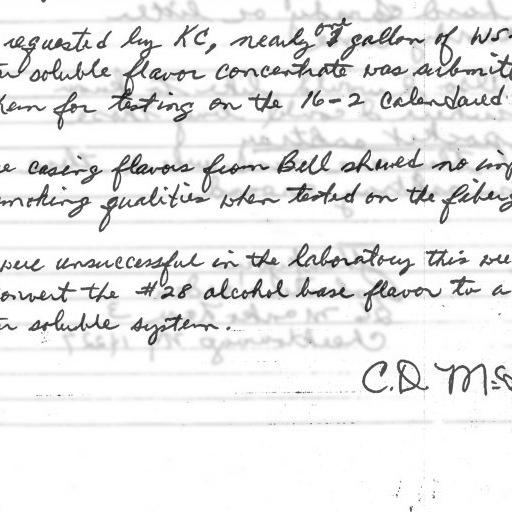 requested by KC, nearly one gallon of WS-
soluble flavor concentrate was submit
for testing on the 16-2 calendared
casing flavors from Bell showed no imp
smoking qualities when tested on the fiberg
were unsuccessful in the laboratory this wee
convert the #28 alcohol base flavor to a
soluble system.
C.D. Mc